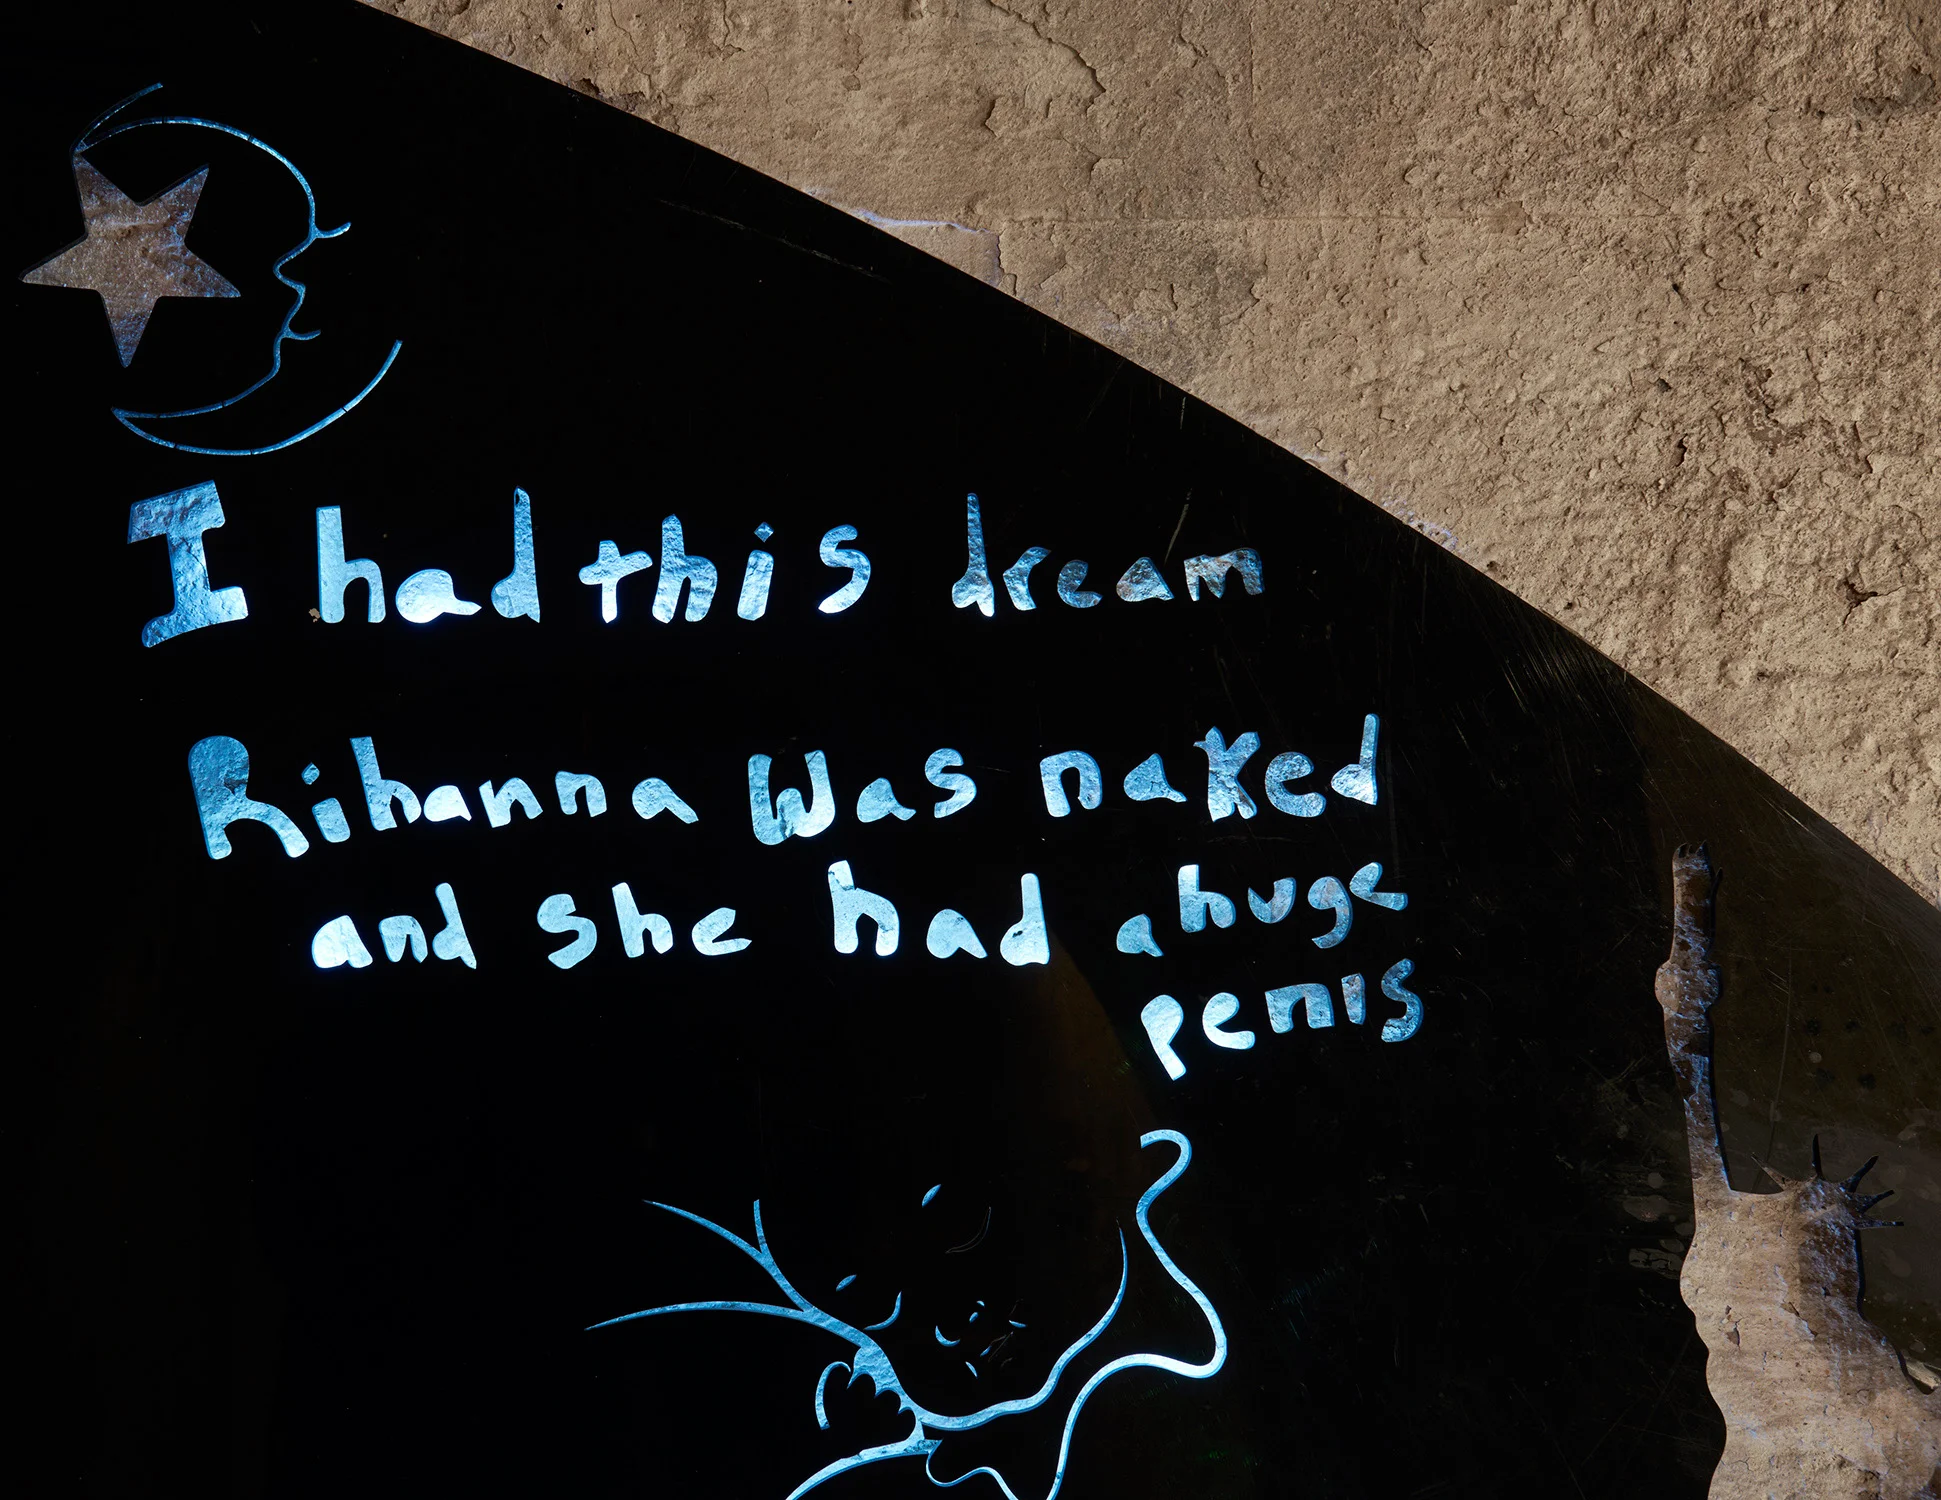 I had this dream
Rihanna Was naked
and she had a huge
penis